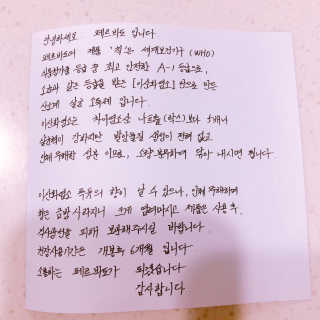 안녕하세요 페르바도 입니다
페르바도의 제품 '칙'은 세계보건기구 (WHO)
식품첨가물 등급 중 최고 안전한 A-1 등급으로,
소금과 같은 등급을 받은 [이산화염소] 만으로 만든
신소재 살균 소독제 입니다.
이산화염소는 차아염소산 나트륨 (락스) 보다 5배나
살균력이 강하지만 발암물질 생성이 전혀 없고
인체 무해한 성분 이므로, 소량 분무하여 닦아 내시면 됩니다.
이산화염소 특유의 향이 날 수 있으나, 인체 무해하며
향은 금방 사라지니 크게 염려마시고 제품은 사용 후,
직사광선을 피해 보관해주시길 바랍니다.
권장사용기간은 개봉후 6개월 입니다
소통하는 페르바도가 되겠습니다
감사합니다